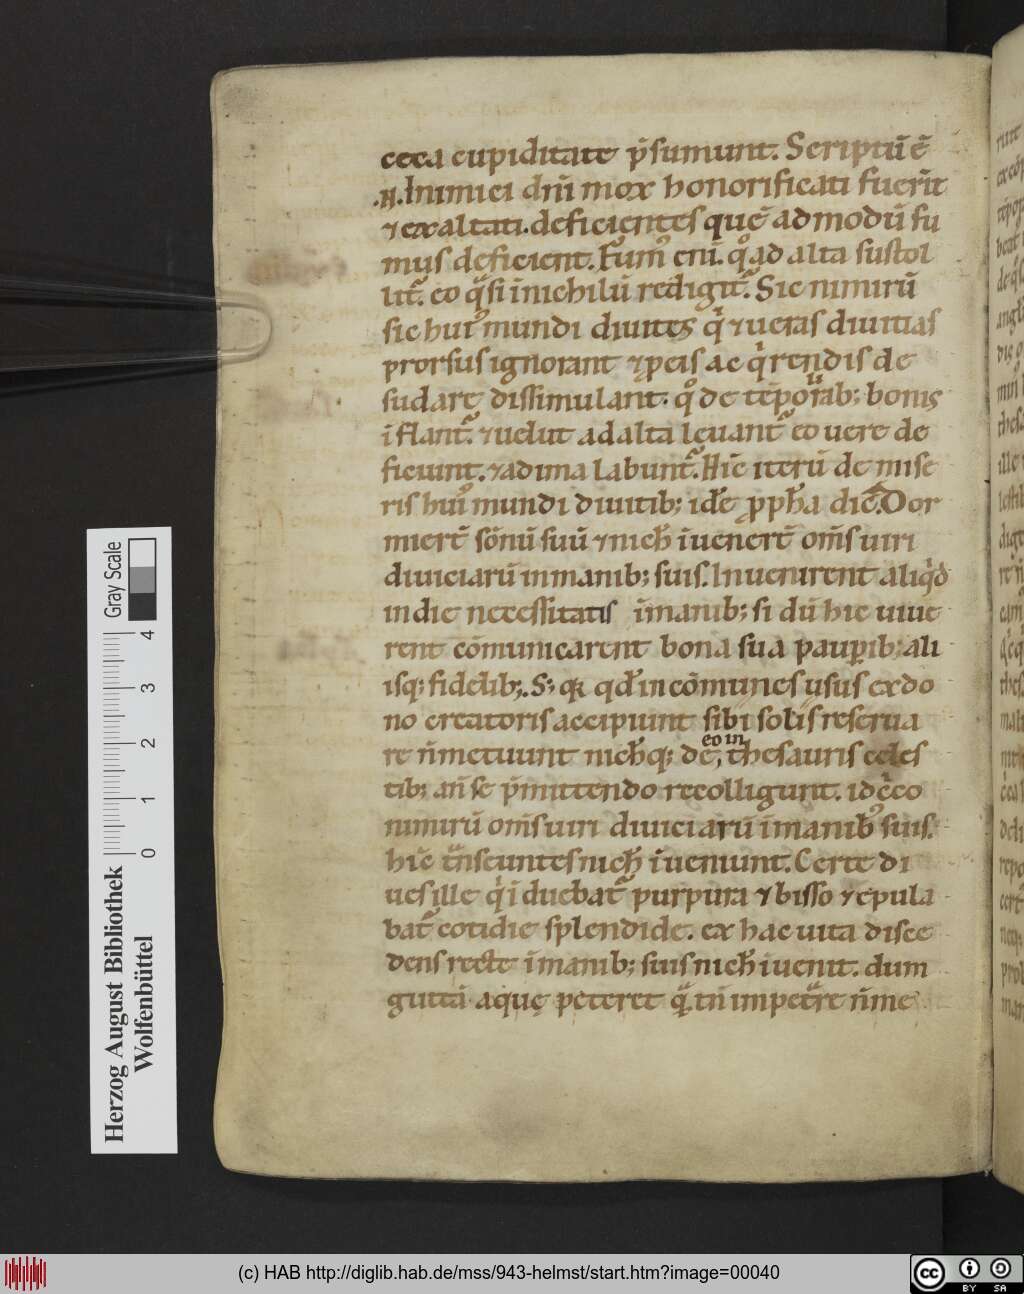 ceca cupiditate p̄sumunt. Scriptū ē
.N. Inimici dn̄i mox honorificati fuer̄t
⁊ exaltati. deficientes quē admodū fu
mus deficient. Fumꝰ eni. qͦ ad alta sustol
lit᷑. eo qᷓsi inichilū redigit᷑. Sic nimirū
sic huiꝰ mundi diuites qͥ ⁊ ueras diuitias
prorsus ignorant ⁊ ꝓ eis acqͥrendis de
sudare dissimulant. qͦ de tēporalib; bonis
īflant᷑. ⁊ uelut ad alta leuant᷑ eo uere de
ficiunt. ⁊ ad ima labunt᷑. Hīc iterū de mise
ris huiꝰ mundi diuitib; idē ꝓpħa dicit. Dor
miert̄ sōnū suū ⁊ nicħ īuenert̄ om̄s uiri
diuiciarū in manib; suis. Inuenirent aliqͥd
in die necessitatis īmanib; si dū hic uiue
rent cōmunicarent bona sua pauꝑib; ali
isq; fidelib;. S; qꝛ qd̄ in cōmunes usus ex do
no creatoris accipiunt sibi solis reserua
re n̄ metuunt nicħq; de eo in thesauris celes
tib; an̄ se p̄mittendo recolligunt. idcͥco
nimirū om̄s uiri diuiciarū īmanibꝰ suis.
hīc tᷓnseuntes nicħ īueniunt. Certe di
ues ille qͥ īduebat᷑ purpura ⁊ bisso ⁊ epula
bat᷑ cotidie splendide. ex hac uita disce
dens recte īmanib; suis nicħ īuenit. dum
guttā aquę peteret qᷓ tn̄ impetᷓre n̄ me
Herzog August Bibliothek
Wolfenbüttel
Gray Scale
0 1 2 3 4
(c) HAB http://diglib.hab.de/mss/943-helmst/start.htm?image=00040
cc BY SA